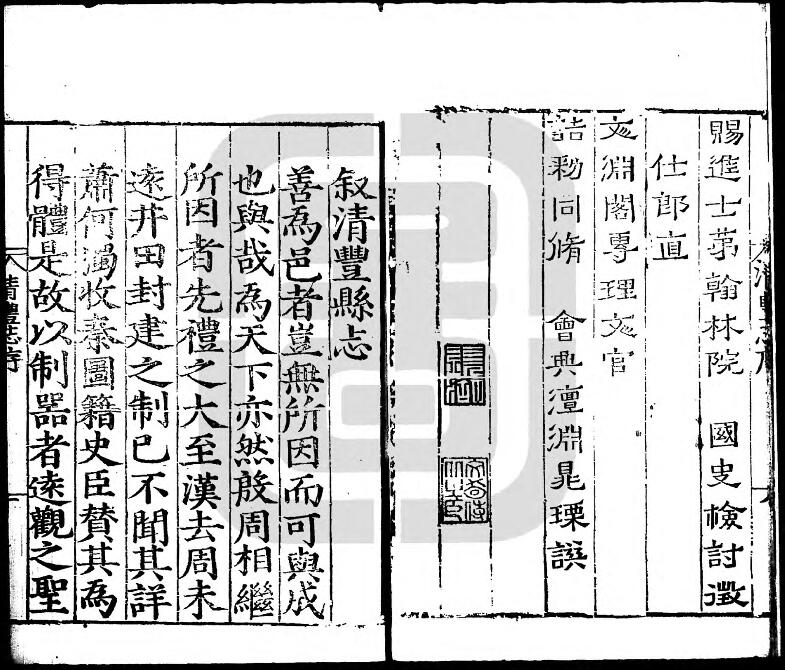 賜進士苐翰林院 國史檢討徵
仕郎直
文淵閣專理文官
誥勑同脩 會典澶淵晁瑮譔
叙清豐縣志
善為邑者豈無所因而可與成
也與哉為天下亦然殷周相繼
所因者先禮之大至漢去周未
逺井田封建之制已不聞其詳
蕭何獨收秦圖籍史臣賛其為
得體是故以制噐者逺觀之聖
清豐志序